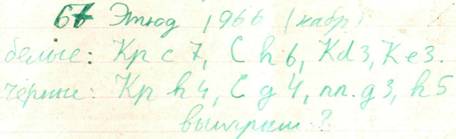 66 Этюд 1966 (кабр)
белые: Кр c7, С h6, Кd3, Ке3.
чёрные: Кр h4, С g4, пп. g3, h5
выигрыш?